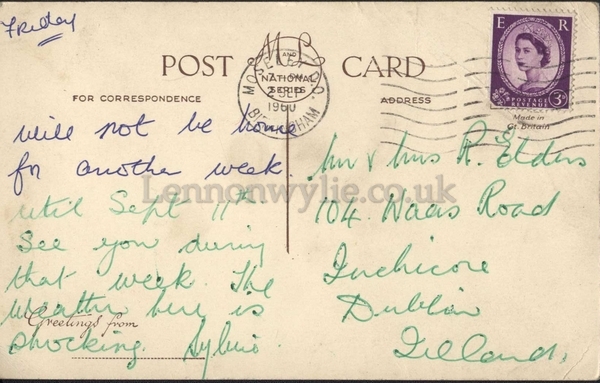 Friday
POST CARD
M & L
NATIONAL
SERIES
FOR CORRESPONDENCE
ADDRESS
E R
POSTAGE
REVENUE
3D
Made in
Gt. Britain
MOSELEY AND
2 SEP
1960
BIRMINGHAM
will not be home
for another week.
until Sept 11th
See you during
that week. The
Weather here is
shocking. Sylvia.
Greetings from
Mr & Mrs R. Elders
104. Naas Road
Inchicore
Dublin
Ireland.
Lennonwylie.co.uk